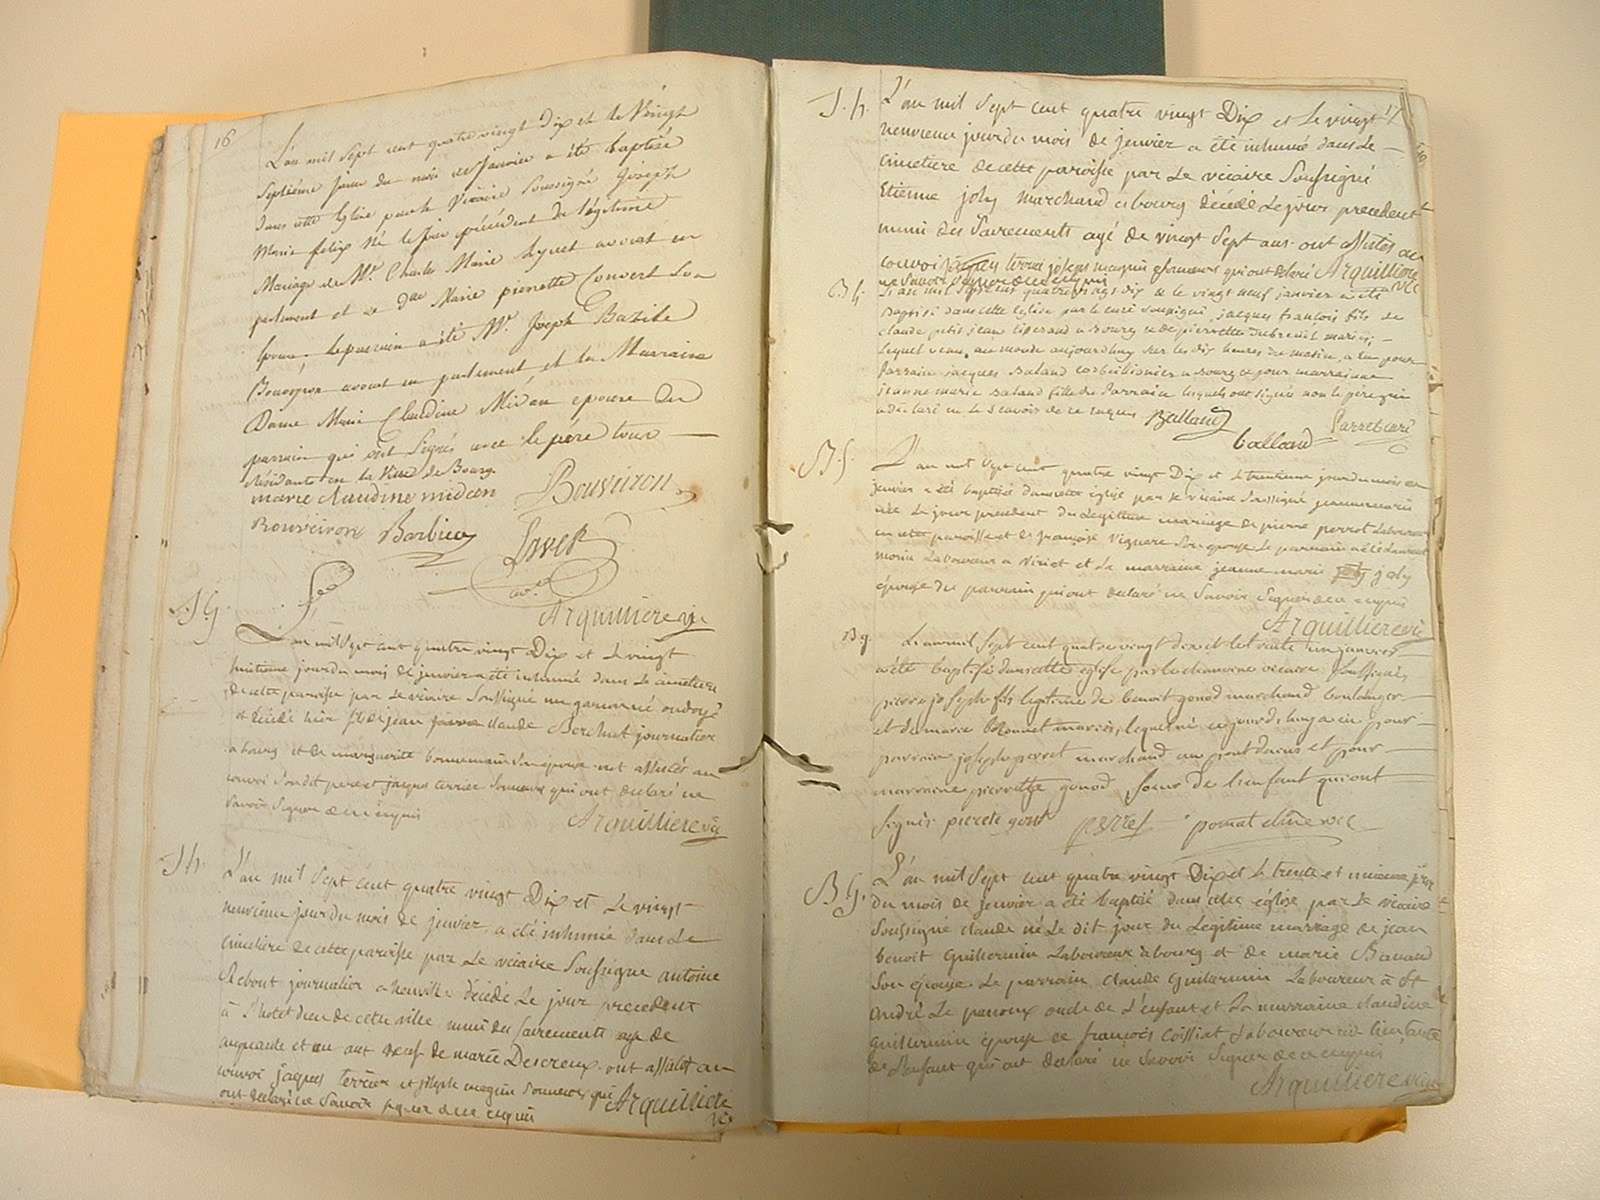 16
L'an mil Sept cent quatre vingt Dix et le Vingt
Septième jour du mois de Janvier a été baptisé
dans cette Eglise par le Vicaire Soussigné Joseph
Marie felix né le jour précédent du légitime
Mariage de Mr. Charles Marie avocat en
parlement et de dme Marie pierrette Convert Son
épouse. le parrain a été Mr. Joseph Bazile
Bouveyron avocat en parlement, et la Marraine
Dame Marie Claudine Midan epouse du
parrain qui ont Signés avec le père tous
résidants en la Ville de Bourg.
marie claudine midan Bouveiron
Bouveiron Barbier
Arquilliere vic
S G.
L'an mil Sept cent quatre vingt Dix et Le vingt
huitieme jour du mois de janvier a été inhumé dans Le cimetiere
de cette paroisse par Le vicaire Soussigné un garçon né ondoyé
et décédé hier fils de jean claude Berchut journalier
a bourg et de marguerite Son épouse ont assistés au
convoi Son dit pere et jaques terrier Sonneur qui ont declaré ne
Savoir Signer de ce enquis
Arquilliere vic
S h.
L'an mil Sept cent quatre vingt Dix et Le vingt
neuvieme jour du mois de janvier a été inhumé dans Le
cimetiere de cette paroisse par Le vicaire Soussigné antoine
Rebout journalier a neuville décédé Le jour precedent
à l'hotel dieu de cette ville muni des Sacrements agé de
cinquante et un ans veuf de marie Descreux. ont assistés au
convoi jaques terrier et joseph magnin Sonneurs qui
ont declaré ne Savoir signer de ce enquis Arquilliere
vic
17
S. h.
L'an mil Sept cent quatre vingt Dix et Le vingt
neuvieme jour du mois de janvier a été inhumé dans Le
cimetiere de cette paroisse par Le vicaire Soussigné
Etienne joly marchand a bourg décédé Le jour precedent
muni des Sacrements agé de vingt Sept ans. ont assistés au
convoi jaques terrier joseph magnin Sonneurs qui ont declaré Arquilliere
ne Savoir Signer de ce enquis vic
B G.
L'an mil Sept cent quatre vingt dix et le vingt neuf janvier a été
Baptisé dans cette Eglise par le curé soussigné, jacques francois fils de
claude petit jean tisserand a Bourg et de pierrette Dubreuil mariés;
Lequel venu au monde aujourdhuy sur les dix heures du matin, a eu pour
Parrain jacques Baland a Bourg et pour marraine
jeanne marie Baland fille du Parrain lesquels ont signés non le père qui
a declaré ne le scavoir de ce enquis Balland
balland
B. f.
L'an mil Sept cent quatre vingt Dix et Le trentieme jour du mois de
janvier a été baptisée dans cette église par Le vicaire Soussigné jeanne marie
née Le jour precedent du Légitime mariage de pierre perrot Laboureur
en cette paroisse et de françoise Vignare Son epouse. Le parrain a été Laurent
morin Laboureur a Viriat et La marraine jeanne marie joly
épouse du parrain qui ont declaré ne Savoir Signer de ce enquis
Arquilliere vic
B g.
L'an mil Sept cent quatre vingt dix et le trente un janvier
a été baptisé dans cette église par le chanoine vicaire Soussigné,
pierre joseph fils légitime de benoit gonod marchand boulanger
et de marie Monnet mariés, lequel né aujourd'huy a eu pour
parrain joseph perret marchand au pont dains et pour
marraine pierrette gonod soeur de l'enfant qui ont
signés pierete gont perret
B G.
L'an mil Sept cent quatre vingt Dix et Le trente et unieme jour
du mois de janvier a été baptisé dans cette église par Le vicaire
Soussigné claude né Le dit jour du Légitime mariage de jean
benoit Guillermin Laboureur a bourg et de marie Banand
Son épouse. Le parrain claude Guillermin Laboureur à St
andré Le panoux oncle de L'enfant et La marraine claudine
guillermin épouse de françois Coissiat Laboureur
de L'enfant qui ont declaré ne Savoir Signer de ce enquis
Arquilliere vic